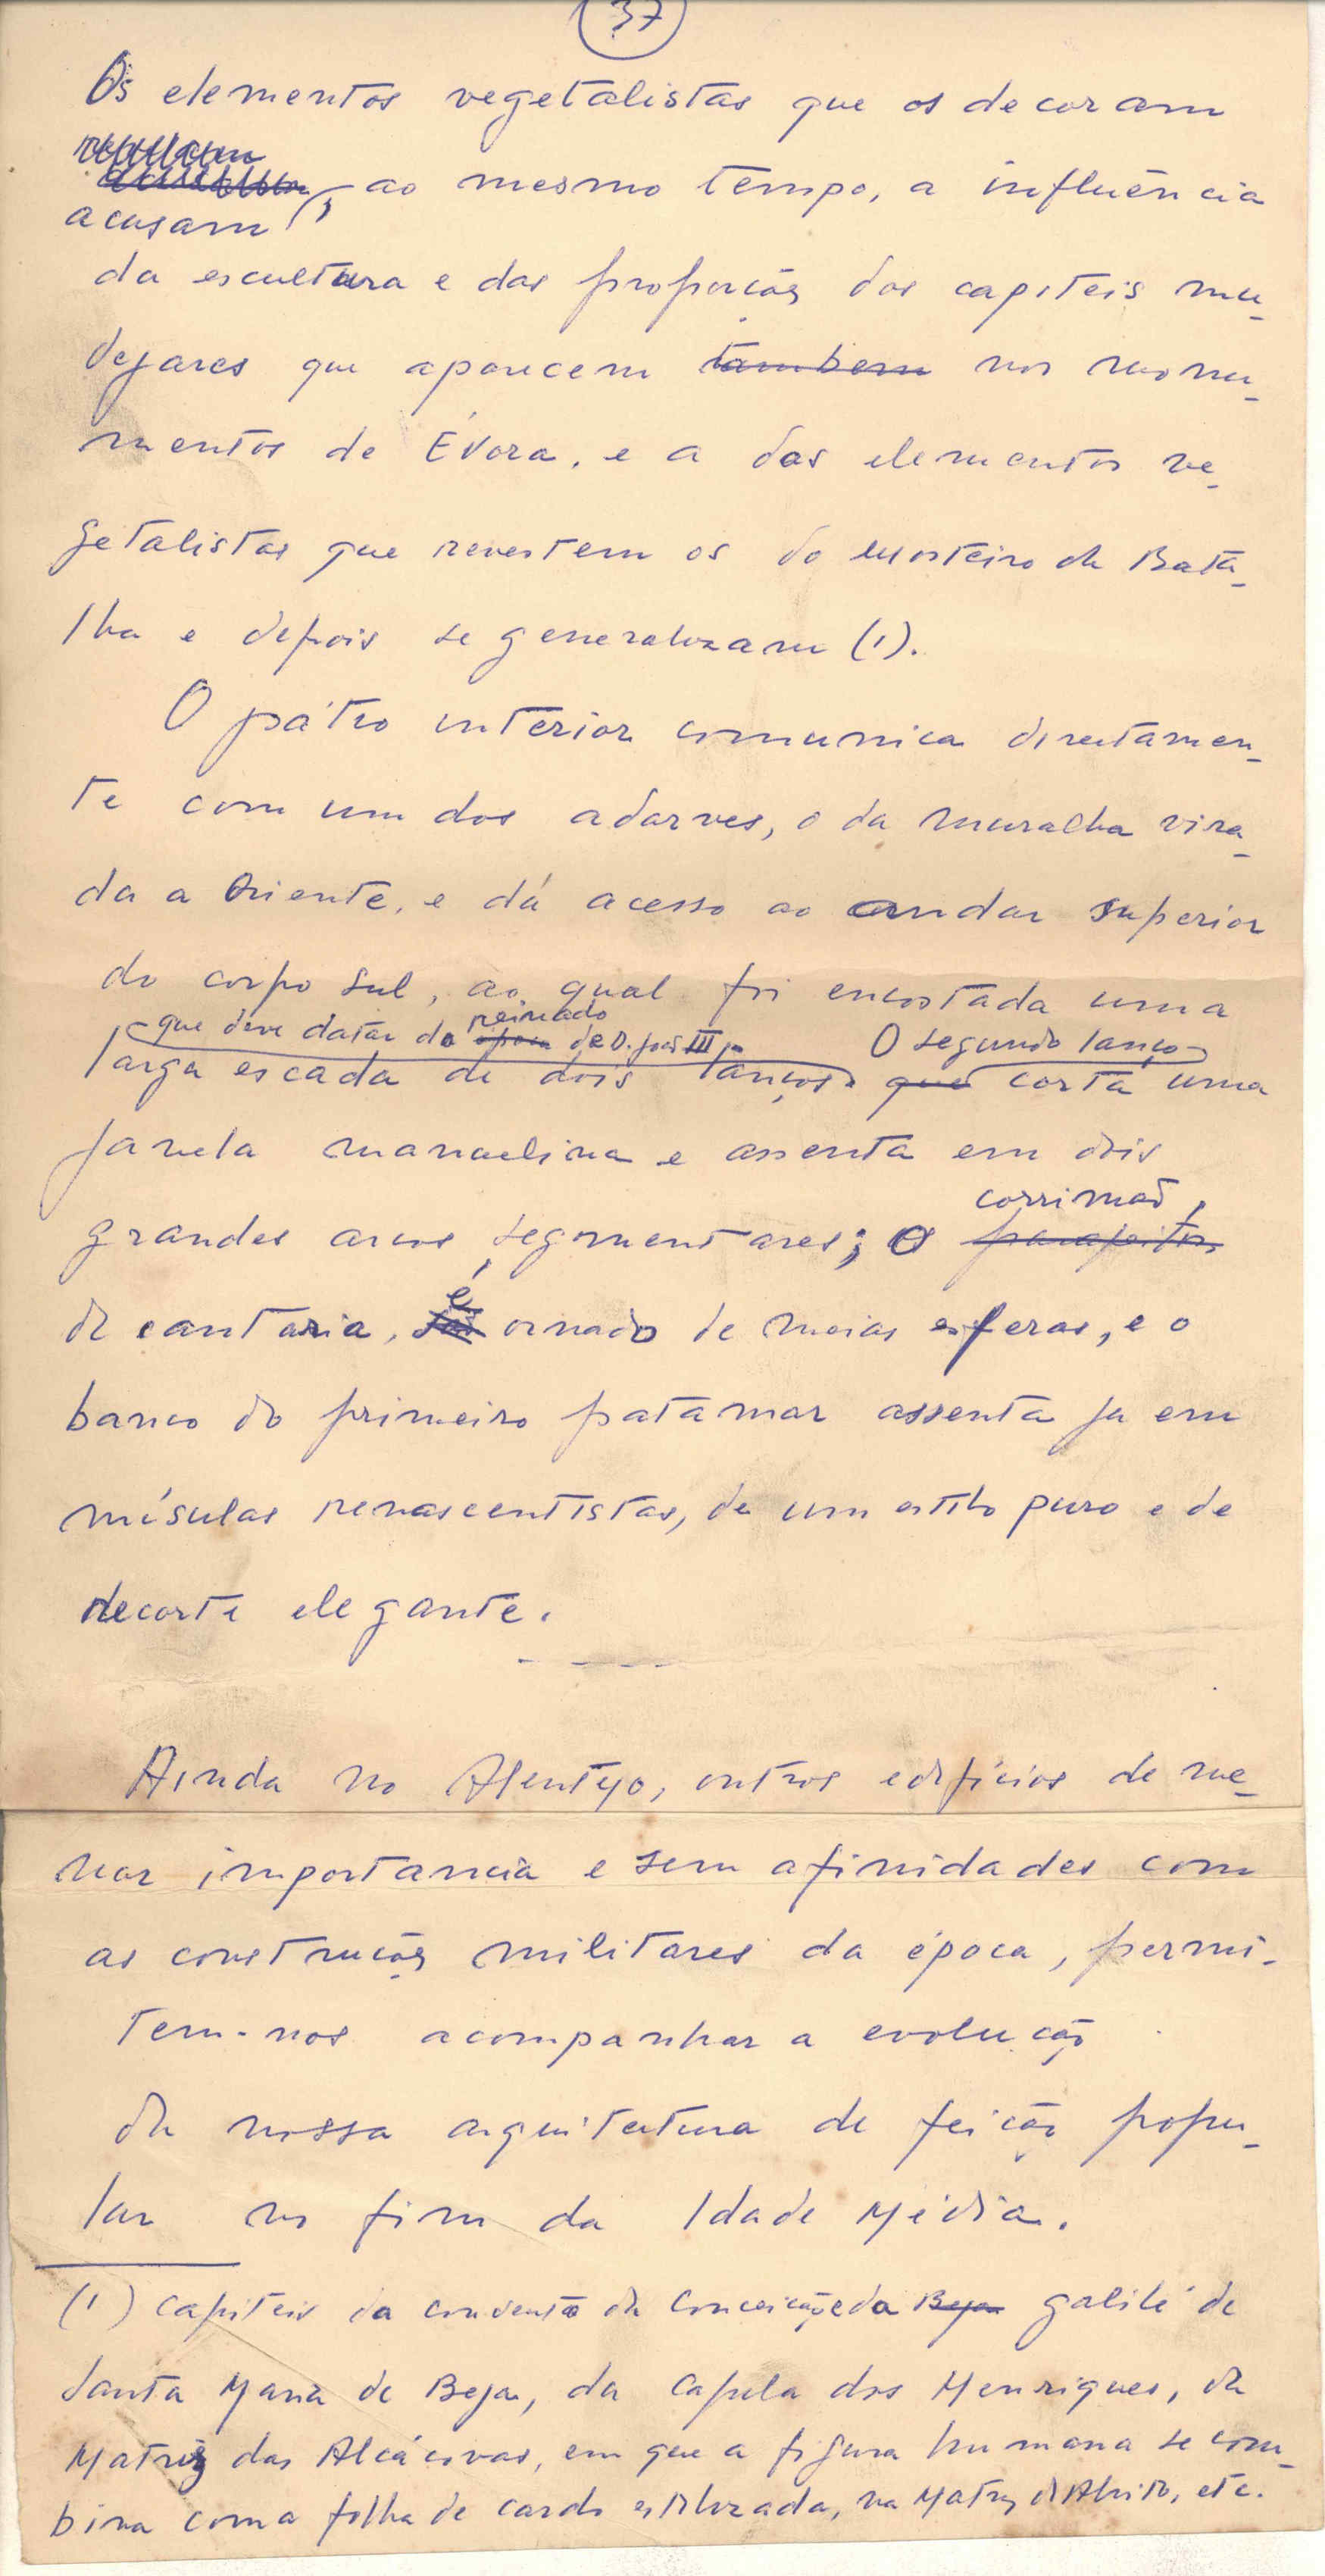 37
Os elementos vegetalistas que os decoram
acusam, ao mesmo tempo, a influência
da escultura e das proporções dos capiteis mu-
dejares que aparecem tambem nos monu-
mentos de Évora, e a dos elementos ve-
getalistas que revestem os do Mosteiro da Bata-
lha e depois se generalizam (1).
O pátio interior comunica directamen-
te com um dos adarves, o da muralha vira-
da a Oriente, e dá acesso ao andar superior
do corpo sul, ao qual foi encostada uma
que deve datar do epoca reinado de D. João III, O segundo lanço
larga escada de dois lanços que corta uma
janela manuelina e assenta em dois
corrimão,
grandes arcos segmentares; o parapeitos
de cantaria, é ornado de meias esferas, e o
banco do primeiro patamar assenta ja em
mísulas renascentistas, de um estilo puro e de
recorte elegante.
Ainda no Alentejo, outros edifícios de me-
nor importancia e sem afinidades com
as construções militares da época, permi-
tem-nos acompanhar a evolução
da nossa arquitectura de feição popu-
lar no fim da Idade Média.
(1) Capiteis do convento da Conceição e da Beja galilé de
Santa Maria de Beja, da Capela dos Henriques, da
Matriz das Alcáçovas, em que a figura humana se com-
bina com a folha de cardo estilizada, na Matriz d'Alvito, etc.